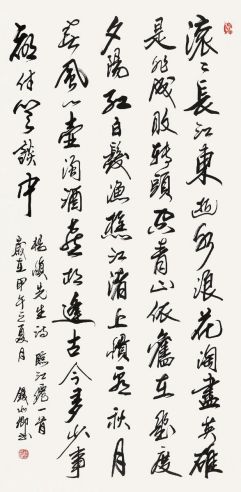 滚〻長江東逝水浪花淘盡英雄
是非成敗轉頭空青山依舊在幾度
夕陽紅白髮漁樵江渚上慣看秋月
春風一壺濁酒喜相逢古今多少事
都付笑談中
楊慎先生詩臨江仙一首
歲在甲午之夏月